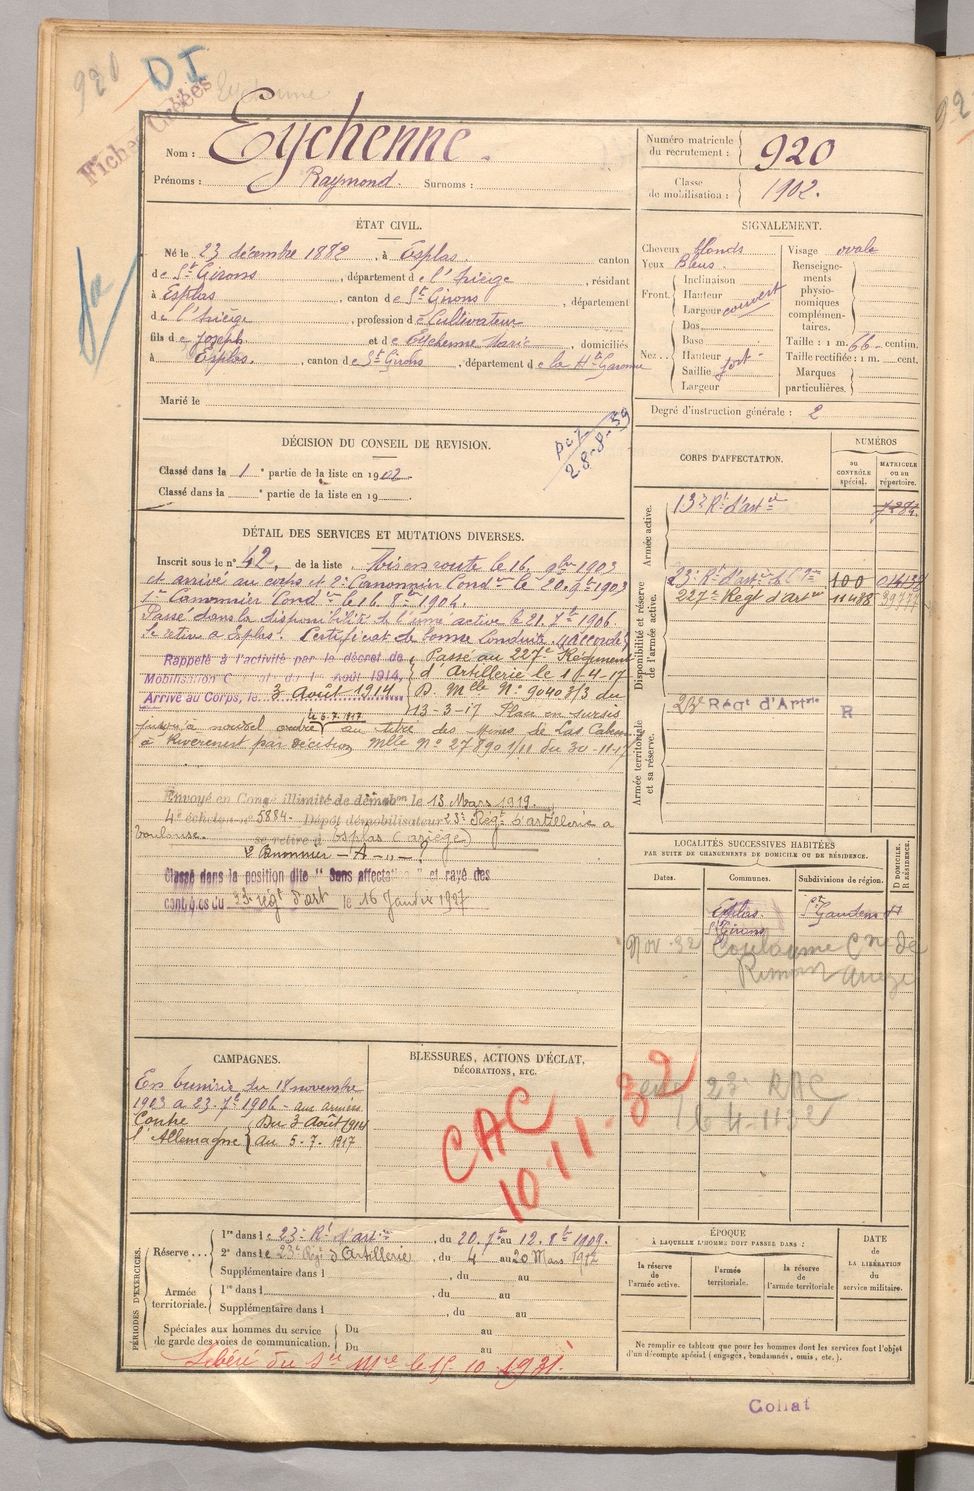 920
DI
Eychenne
Fiches Créées
Nom : Eychenne.
Prénoms : Raymond. Surnoms :
Numéro matricule du recrutement : 920
Classe de mobilisation : 1902.
ÉTAT CIVIL.
Né le 23 décembre 1882, à Esplas. canton
de St Girons, département de l'Ariège, résidant
à Esplas, canton de St Girons, département
de l'Ariège, profession de Cultivateur
fils de Joseph et de Eychenne Marie, domiciliés
à Esplas., canton de St Girons, département de la Hte Garonne
Marié le
SIGNALEMENT.
Cheveux blonds
Yeux Bleus.
Front. Inclinaison
Hauteur
Largeur couvert
Nez... Dos
Base
Hauteur
Saillie fort
Largeur
Visage ovale
Renseignements physionomiques complémentaires.
Taille : 1 m. 66 centim.
Taille rectifiée : 1 m. cent.
Marques particulières.
Degré d'instruction générale : 2
DÉCISION DU CONSEIL DE REVISION.
Classé dans la 1e partie de la liste en 1902.
Classé dans la e partie de la liste en 19 .
28-8-39
DÉTAIL DES SERVICES ET MUTATIONS DIVERSES.
Inscrit sous le n° 42, de la liste. Mis en route le 16 9bre 1903
et arrivé au corps et 2e Canonnier Condr le 20. 9bre 1903
1er Canonnier Condr le 16. 8bre 1904.
Passé dans la disponibilité de l'armée active le 21. 7bre 1906.
Se retire à Esplas. Certificat de bonne Conduite "accordé"
Rappelé à l'activité par le décret de
Mobilisation du 1er Août 1914,
Arrivé au Corps, le 3 Août 1914
Passé au 227e Régiment
d'Artillerie le 1-4-17
D. Mlle N° 9040 3/3 du
13-3-17 Placé en sursis
jusqu'à nouvel ordre le 5.7.1917 au titre des Mines de Las Cabesses
à Rivèrenert par décision Mlle N° 27890 1/11 du 30-11-17
Envoyé en Congé illimité de démobon le 13 Mars 1919.
4e échelon n° 5884. Dépôt démobilisateur 23e Régt d'artillerie à
Toulouse. se retire à Esplas (ariège)
Classé dans la position dite "Sans affectation" et rayé des
contrôles du 23e régt d'art le 16 Janvier 1927
CORPS D'AFFECTATION.
NUMÉROS
au CONTRÔLE spécial.
MATRICULE ou au répertoire.
Armée active.
13e Rt d'artie 7284.
Disponibilité et réserve de l'armée active.
23e Rt d'artie 100
227e Regt d'Artie 11488
Armée territoriale et sa réserve.
23e Régt d'Artrie R
LOCALITÉS SUCCESSIVES HABITÉES
PAR SUITE DE CHANGEMENTS DE DOMICILE OU DE RÉSIDENCE.
Dates. Communes. Subdivisions de région. D DOMICILE. R RÉSIDENCE.
Esplas. St Gaudens
St Girons
Nov. 32 Coulagume Cne de
Rimont Ariège
23e RAC
le 4-11 32
CAMPAGNES.
En Tunisie du 18 novembre
1903 à 23. 7bre 1906 - aux armées
Contre l'Allemagne Du 3 Août 1914
au 5-7-1917
BLESSURES, ACTIONS D'ÉCLAT, DÉCORATIONS, ETC.
CAC
10-11-32
PÉRIODES D'EXERCICES.
Réserve... 1re dans le 23e Rt d'artie, du 20. 7bre au 12. 8bre 1909.
2e dans le 23e Régt d'Artillerie, du 4 au 20 Mars 1912
Supplémentaire dans l , du au
Armée territoriale. 1re dans l , du au
Supplémentaire dans l , du au
Spéciales aux hommes du service de garde des voies de communication. Du au
Du au
Libéré du Sce Mre le 15-10-1931.
ÉPOQUE
À LAQUELLE L'HOMME DOIT PASSER DANS :
la réserve de l'armée active.
l'armée territoriale.
la réserve de l'armée territoriale
DATE DE LA LIBÉRATION du service militaire.
Ne remplir ce tableau que pour les hommes dont les services font l'objet
d'un décompte spécial (engagés, condamnés, omis, etc.).